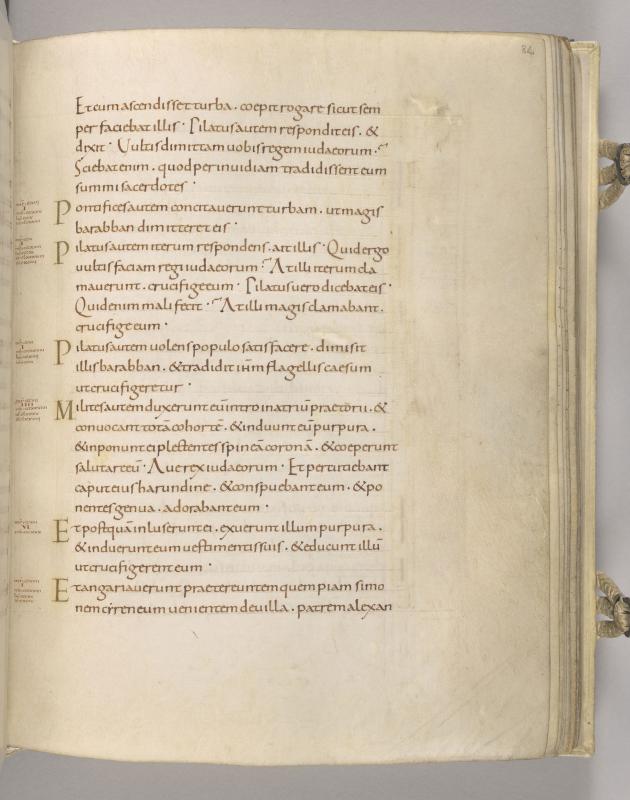 84
Et cum ascendisset turba. coepit rogare sicut sem
per faciebat illis. Pilatus autem respondit eis. &
dixit. Vultis dimittam uobis regem iudaeorum.
Sciebat enim. quod per inuidiam tradidissent eum
summi sacerdotes.
Pontifices autem concitauerunt turbam. ut magis
barabban dimitteret eis.
Pilatus autem iterum respondens. ait illis. Quid ergo
uultis faciam regi iudaeorum. At illi iterum cla
mauerunt. crucifige eum. Pilatus uero dicebat eis.
Quid enim mali fecit. At illi magis clamabant.
crucifige eum.
Pilatus autem uolens populo satisfacere. dimisit
illis barabban. & tradidit ihm flagellis caesum
ut crucifigeretur.
Milites autem duxerunt eū intro in atriū praetorii. &
conuocant totā cohortē. & induunt eū purpura.
& inponunt ei plectentes spineā coronā. & coeperunt
salutare eū. Aue rex iudaeorum. Et percutiebant
caput eius harundine. & conspuebant eum. & po
nentes genua. adorabant eum.
Et postquā inluserunt ei. exuerunt illum purpura.
& induerunt eum uestimentis suis. & educunt illū
ut crucifigerent eum.
Et angariauerunt praetereuntem quempiam simo
nem cyreneum uenientem de uilla. patrem alexan